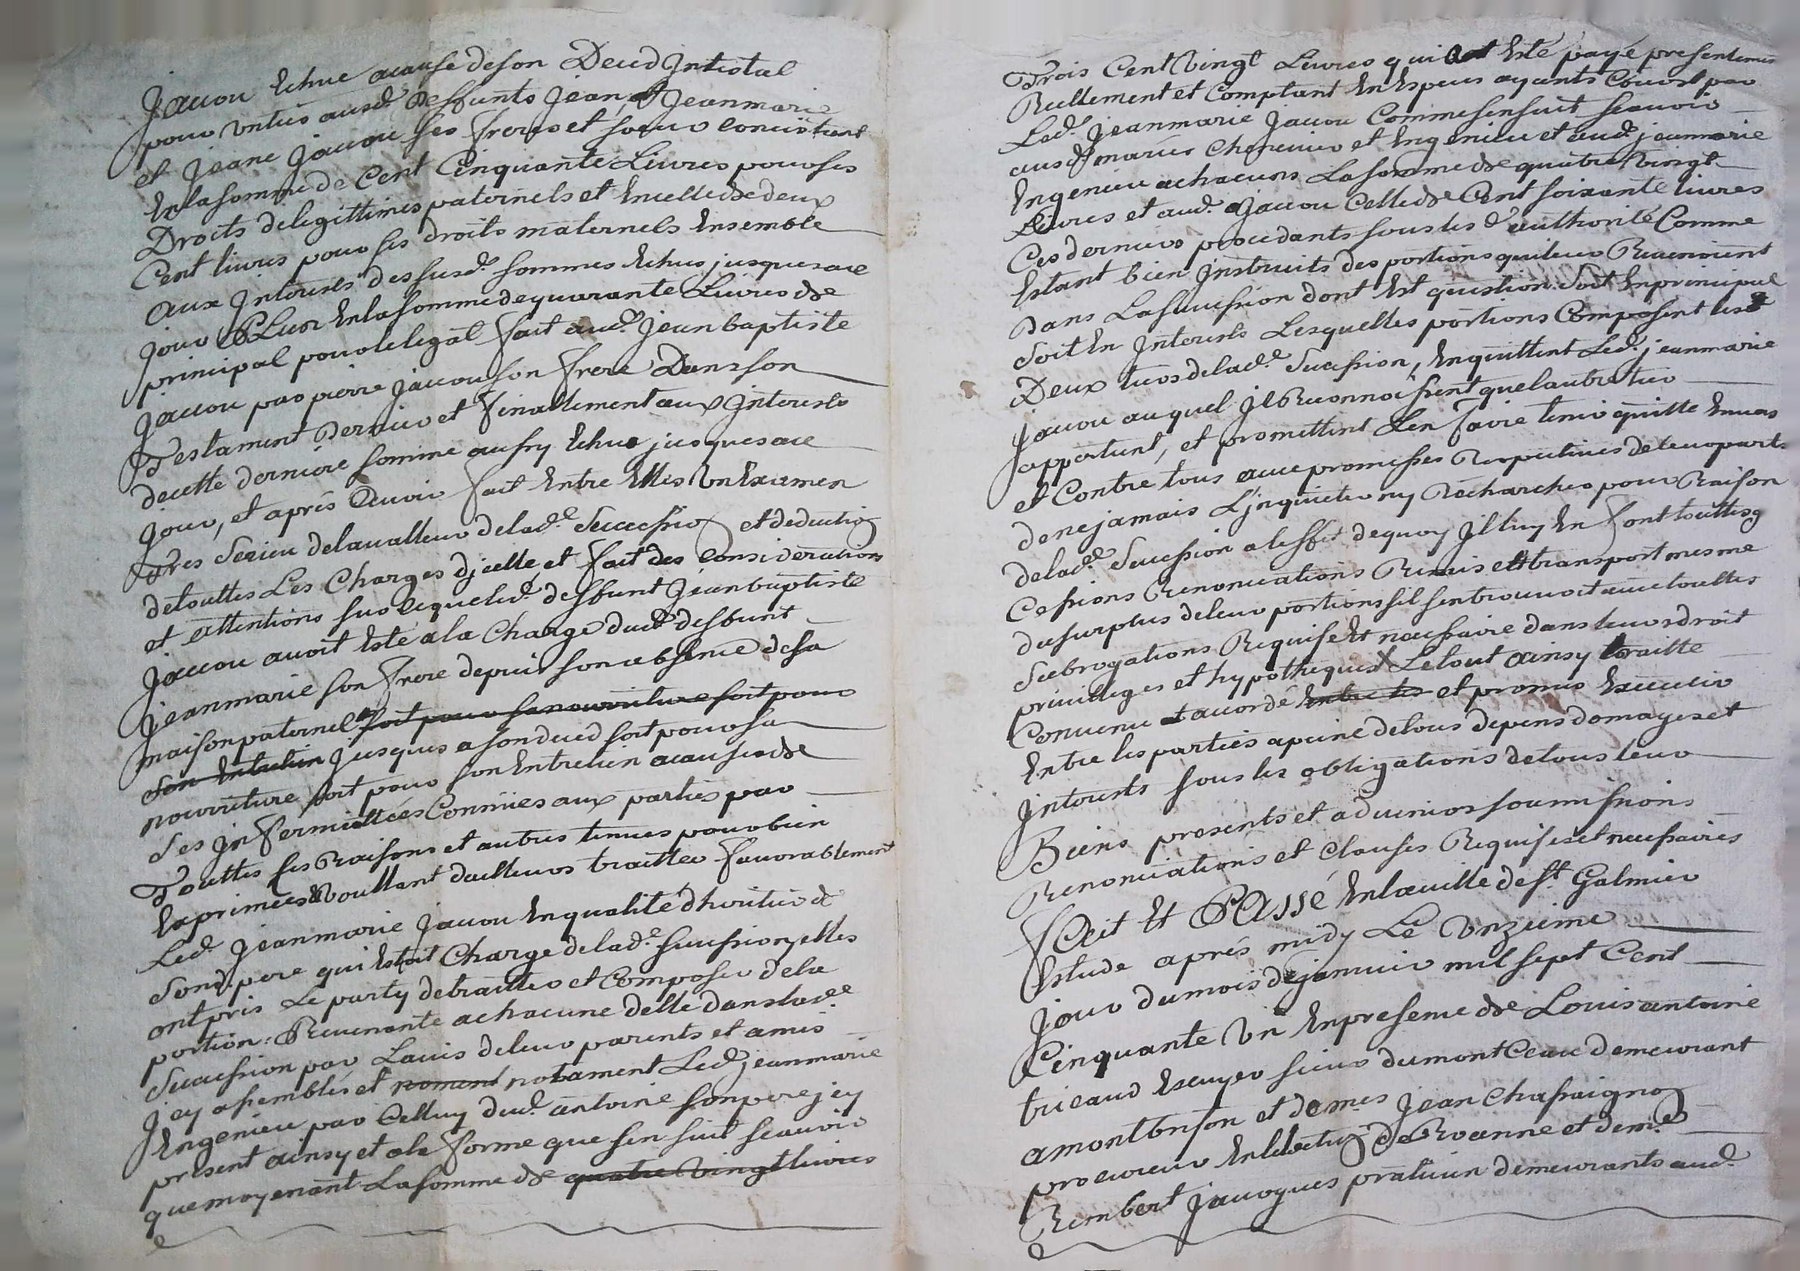 Jacou Echue acause deson Deud Jntestat
pour Vnties ausd. Deffunts Jean, et Jeanmarie
et Jeane Jacou ses freres et soeur consistant
En la somme de Cent Cinquante Livres pour ses
Droits delegittimes paternels et Encelle de deux
Cent livres pour ses droits maternels Ensemble
aux Jnterests dessusd. sommes Echus jusques a ce
jour Plus En la somme de quarante Livres de
principal pour le legat fait aud. Jean baptiste
Jacou par pierre jacou son frere Dans son
Testament Dernier et finallement aux Jnterests
de cette derniere somme aussy Echus jusques a ce
jour, et aprés avoir fait Entre Elles Vn Examen
tres Serieu de la valleur de lad.e Succession et deduction
de touttes Les Charges d'jcelle et fait des considerations
et attentions sur ce que led. deffunt Jean baptiste
Jacou avoit Esté a la Charge dud. deffunt
Jeanmarie son frere depuis son absence de sa
maison paternel soit pour sa nourriture soit pour
son Entretien jusques a son deced soit pour sa
nourriture soit pour son Entretien a cause de
ses Jnfermittées Connües aux parties par
Touttes ses Raisons et autres tenues pour bien
Exprimées & Voullant dailleurs traitter favorablement
Led. Jeanmarie Jacou En qualité d'heritier de
Sond. pere qui Estoit Charge de lad.e succession, elles
ont pris Le party de traitter et Composer de la
portion Revenante a chacune d'elle dans lad.e
Succession par Lavis de leur parents et amis
Jcy assemblés et noment notament Led. jeanmarie
Engenieu par Celluy dud. antoine son pere jcy
present ainsy et a la forme que sen suit scavoir
que moyenant La somme de quatre vingt livres
Trois Cent Vingt Livres qui ont Esté payé presentement
Reellement et Comptant En Especes ayants Cours par
Led. Jeanmarie Jacou Comme sensuit scavoir
ausd. mariés Chenevier et Engenieu et aud. jeanmarie
Engenieu a chacuns La somme de quatre Vingt
Livres et aud. Jacou Celle de Cent soixante livres
Ces derniers procedants sous les d. authorité Comme
Estant bien Jnstruits des portions qui leur Revenoient
Dans La succession dont Est question soit En principal
Soit En Jnterests Lesquelles portions Composent les
Deux tiers de lad.e Succession, En quittent Led. jeanmarie
Jacou auquel Jls Reconnoissent que lautre tier
appartient, et promettent Len faire tenir quitte Envers
et Contre tous avec promesses Respectives de leur part
de ne jamais L'jnquieter ny Recharcher pour Raison
de lad.e Succession a leffet de quoy Jl luy En font touttes
Cessions Renonciations Remis et transport mesme
du surplus de leur portion s'il s'en trouvoit avec touttes
Subrogations Requise et necessaire dans leurs droit
privileges et hypotheques Le tout ainsy traitté
Convenu et accordé Entre les et promis Executer
Entre les parties a peine de tous depens domages et
Jnterests sous les obligations de tous leur
Biens presents et advenir soumissions
Renonciations et Clauses Requises et necessaires
Fait Et Passé En la ville de St. Galmier
Estude aprés midy Le Unzieme
jour du mois de janvier mil sept Cent
Cinquante Un En presence de Louis antoine
tricaud Escuyer sieur dumontceau demeurant
a montbrison et de me. Jean Chassaignon
procureur En l'Election de Roanne et de me.
Rembert Javogues praticien demeurants aud.